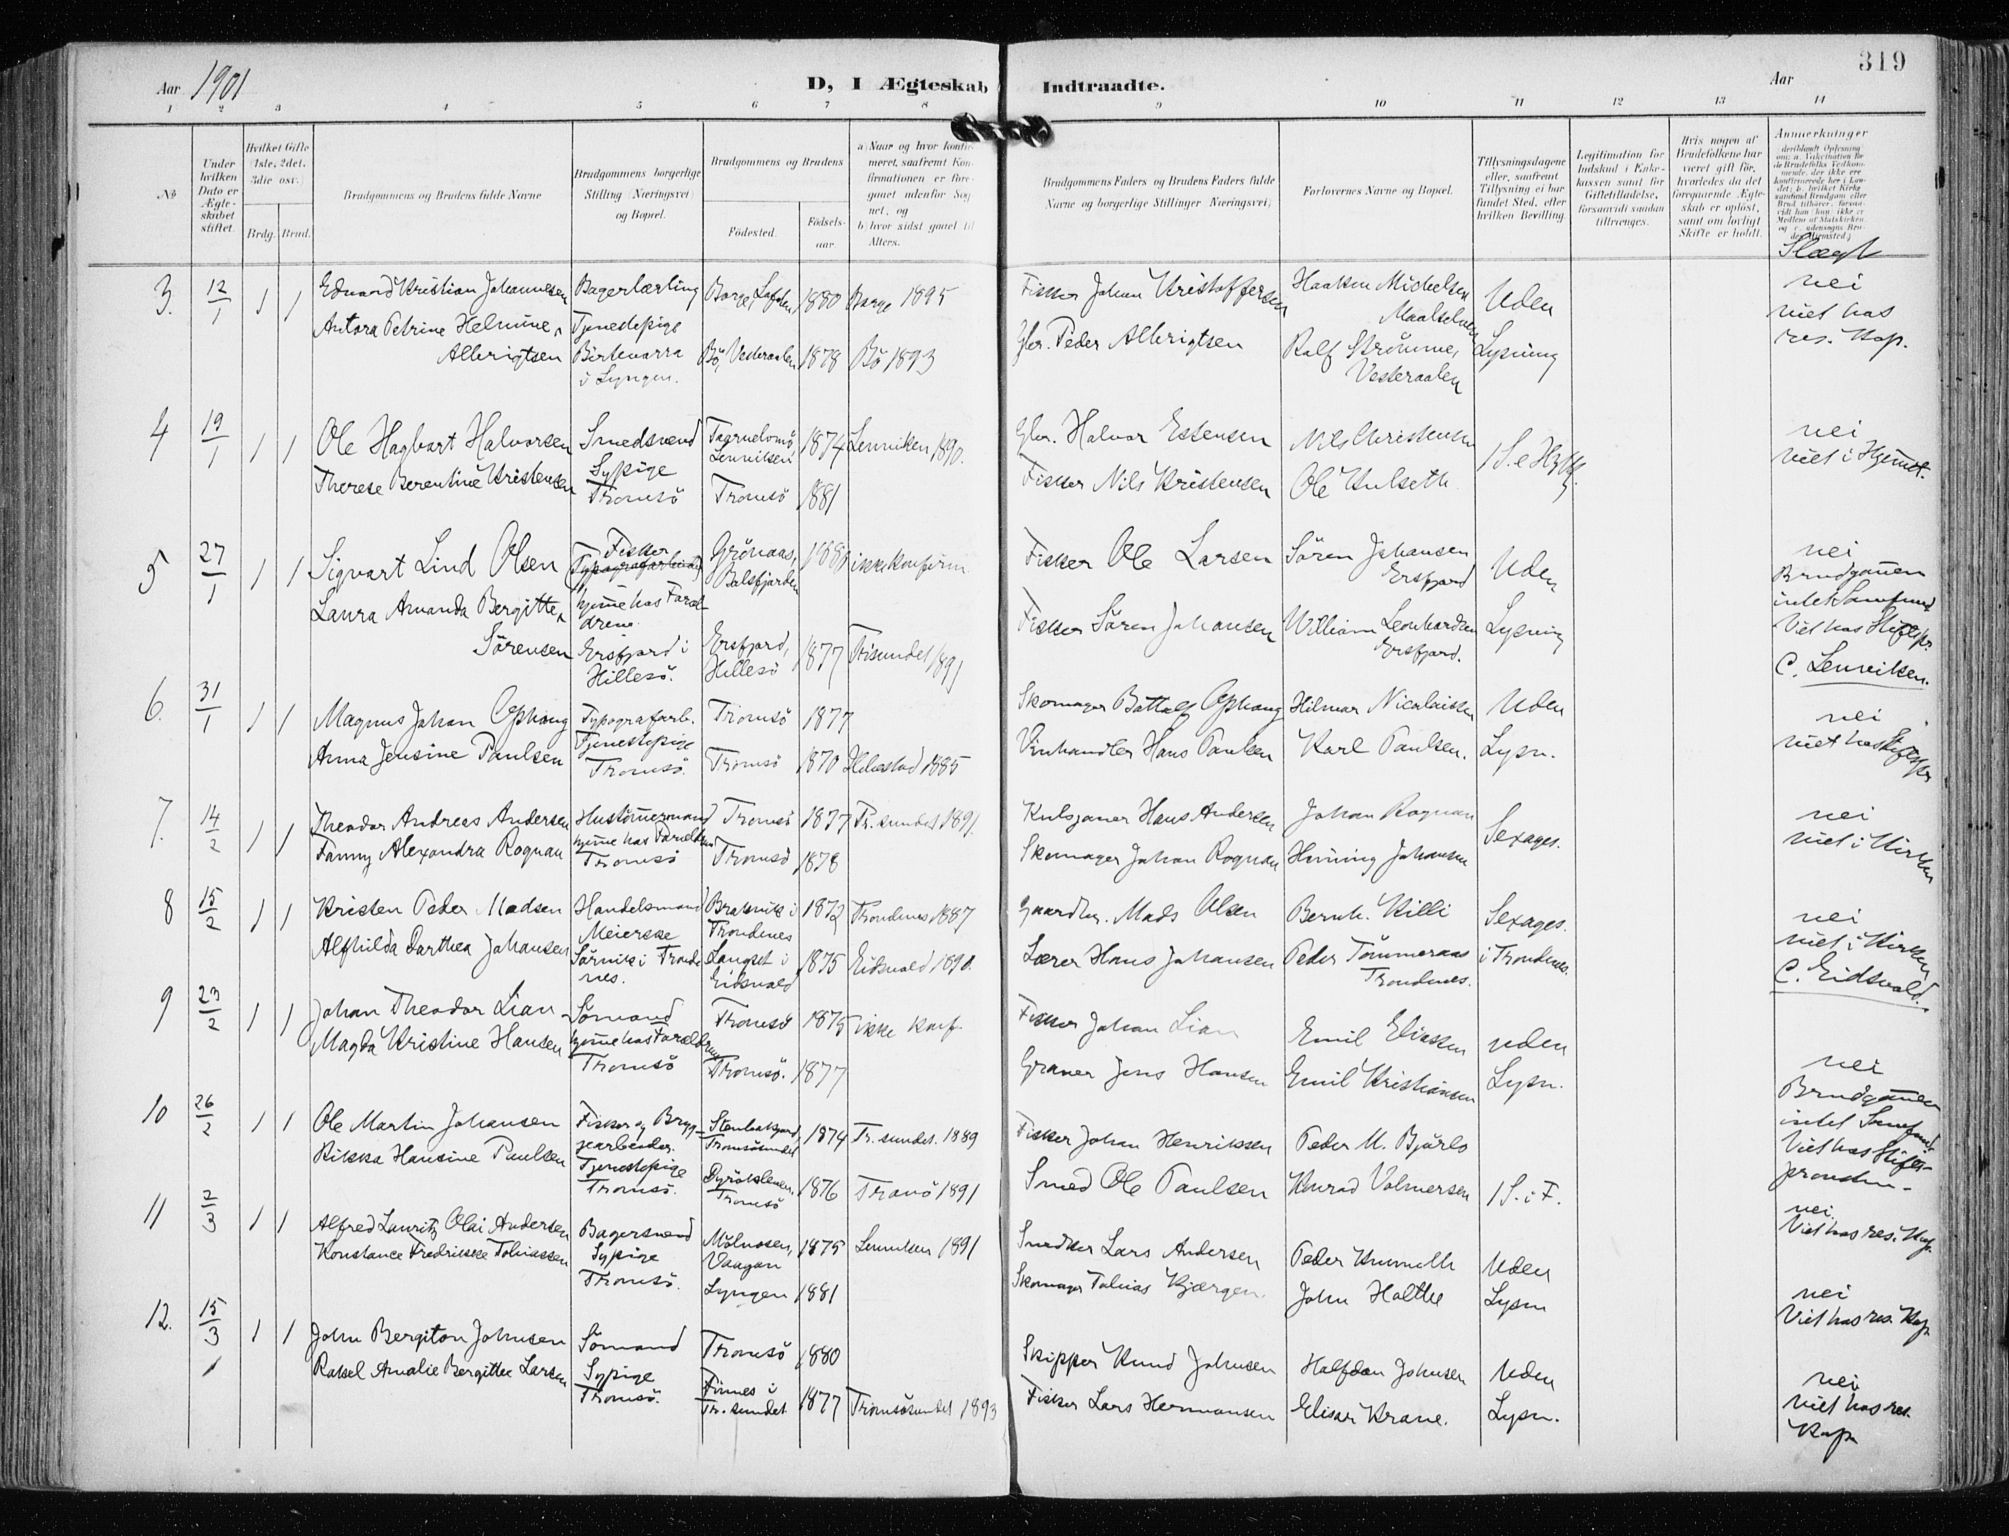 319
Aar 1901
D, I Ægteskab Indtraadte.
Aar
1 2 3 4 5 6 7 8 9 10 11 12 13 14
No
Under hvilken Dato er Ægteskabet stiftet.
Hvilket Gifte (1ste, 2det, 3die osv.)
Brdg. Brud.
Brudgommens og Brudens fulde Navne
Brudgommens borgerlige Stilling (Næringsvei) og Bopæl.
Brudgommens og Brudens
Födested.
Födselsaar.
a) Naar og hvor konfirmeret, saafremt Konfirmationen er foregaaet udenfor Sognet, og
b) hvor sidst gaaet til Alters.
Brudgommens Faders og Brudens Faders fulde Navne og borgerlige Stillinger (Næringsvei)
Forlovernes Navne og Bopæl.
Tillysningsdagene eller, saafremt Tillysning ei har fundet Sted, efter hvilken Bevilling.
Legitimation for Indskud i Enkekassen samt for Giftetilladelse, forsaavidt saadan tiltrænges.
Hvis nogen af Brudefolkene har været gift för, hvorledes da det foregaaende Ægteskab er oplöst, samt om lovligt Skifte er holdt.
Anmerkninger
Slægt
3. 12/1 1 1
Edvard Kristian Johannesen Bagerlærling Borge, Lofoten 1880 Borge 1895
Fisker Johan Kristoffersen Haakon Mickelsen Maalselven Uden
nei
Antora Petrine Helmine Albrigtsen Tjenestepige Birtavarra i Lyngen. Bö, Vesteraalen 1878 Bö 1893
Gbr. Peder Albrigtsen Ralf Strömme, Vesteraalen Lysning
viet hos res. Kap.
4 19/1 1 1
Ole Hagbart Halvorsen Smedsvend Lenviken 1874 Lenviken 1890.
Gbr. Halvor Estensen Nils Kristensen
nei
Therese Berentine Kristensen Sypige Tromsö Tromsö 1881
Fisker Nils Kristensen Ole Hulseth
viet i Hjemst.
5 27/1 1 1
Sigvart Lind Olsen Fisker Grönaas, Balsfjorden ikke konfirm.
Fisker Ole Larsen Sören Johansen Ersfjord Uden
nei
Brudgommen intet Samfund
Laura Amanda Bergitte Sörensen hjemme hos Forældrene Ersfjord i Hillesö. Ersfjord, Hillesö 1877 Tr.sundet 1891
Fisker Sören Johansen William Leonhardsen Ersfjord. Lysning
Viet hos Stiftspr.
C. Lenviken.
6. 31/1 1 1
Magnus Johan Ophaug Typografarb. Tromsö 1877
Skomager Bottolf Ophaug Hilmar Nicolaisen Uden
nei
Anna Jensine Paulsen Tjenestepige Tromsö. Tromsö 1870 1885
Vinhandler Hans Paulsen Karl Paulsen. Lysn.
viet hos Stiftspr
7. 14/2 1 1
Theodor Andreas Andersen Hustömermand Tromsö 1877 Tr.sundet 1891.
Kulsjauer Hans Andersen Johan Rognan Sexages.
nei
Fanny Alexandra Rognan hjemme hos Forældrene Tromsö Tromsö 1878
Skomager Johan Rognan Henning Johansen
viet i Kirken
8 15/2 1 1
Kristen Peder Madsen Handelsmand Brokvik i Trondenes 1872 Trondenes 1887
Gaardbr. Mads Olsen Bernh. Killi Sexages.
nei
Alfhilda Darthea Johansen Meierske Sörvik i Trondenes. Langset i Eidsvold 1875 Eidsvold 1890.
Lærer Hans Johansen Peder Tömmeraas Trondenes. i Trondenes.
viet i Kirken
C. Eidsvold.
9 23/2 1 1
Johan Theodor Lian Sömand Tromsö 1875 ikke konf.
Fisker Johan Lian Emil Eliassen uden
nei
Magda Kristine Hansen hjemme hos Forældrene Tromsö Tromsö. 1877
Graver Jens Hansen Emil Kristiansen Lysn.
Brudgommen intet Samfund
Viet hos Stiftsprovsten
10 26/2 1 1
Ole Martin Johansen Fisker og Bryggearbeider. Tromsösundet 1874 Tr.sundet. 1889
Fisker Johan Henrikssen Peder M. Bjørlo
Rikka Hansine Paulsen Tjenestepige Tromsö. Tromsö 1876 Tranö 1891
Smed Ole Paulsen Konrad Volmersen 1 S. i F.
nei.
Viet hos res. Kap.
11 2/3 1 1
Alfred Lauritz Olai Andersen Bagersvend Mölnosen, Vaagan 1875 Lenviken 1891
Snedker Lars Andersen Peder Uden
nei
Konstance Fredrikke Tobiassen Sypige Tromsö. Lyngen 1881
Skomager Tobias Kjærgen John Holthe Lysn
Viet hos res. Kap.
12. 15/3 1 1
John Bergiton Johnsen Sömand Tromsö 1880
Skipper Knud Johnsen Halfdan Johnsen Uden
nei
Rakel Amalie Bergitte Larsen Sypige Tromsö. Finnes i Tr.sundet 1877 Tromsösundet 1893
Fisker Lars Hermansen Elisar Krane. Lysn.
viet hos res. Kap